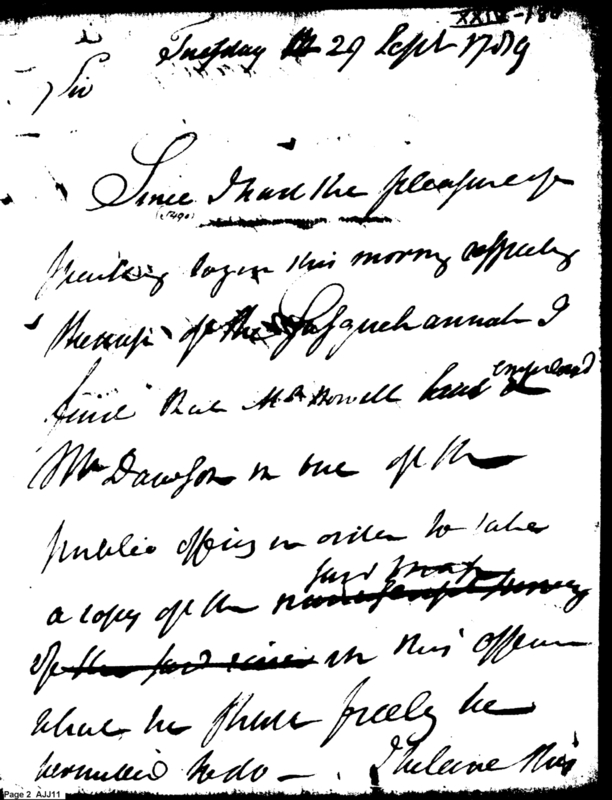 XXIV-180
Tuesday 29 Sept 1789
Sir
Since I had the pleasure of
(5490)
speaking to you this morning respecting
the map of the Sasquehannah I
find that Mr Howell has
employed
Mr Dawson in one of the
public offices in order to take
a copy of the manuscript survey
said map
of the said river in this office
what he shall freely be
permitted to do — . I believe this
Page 2 AJJ11